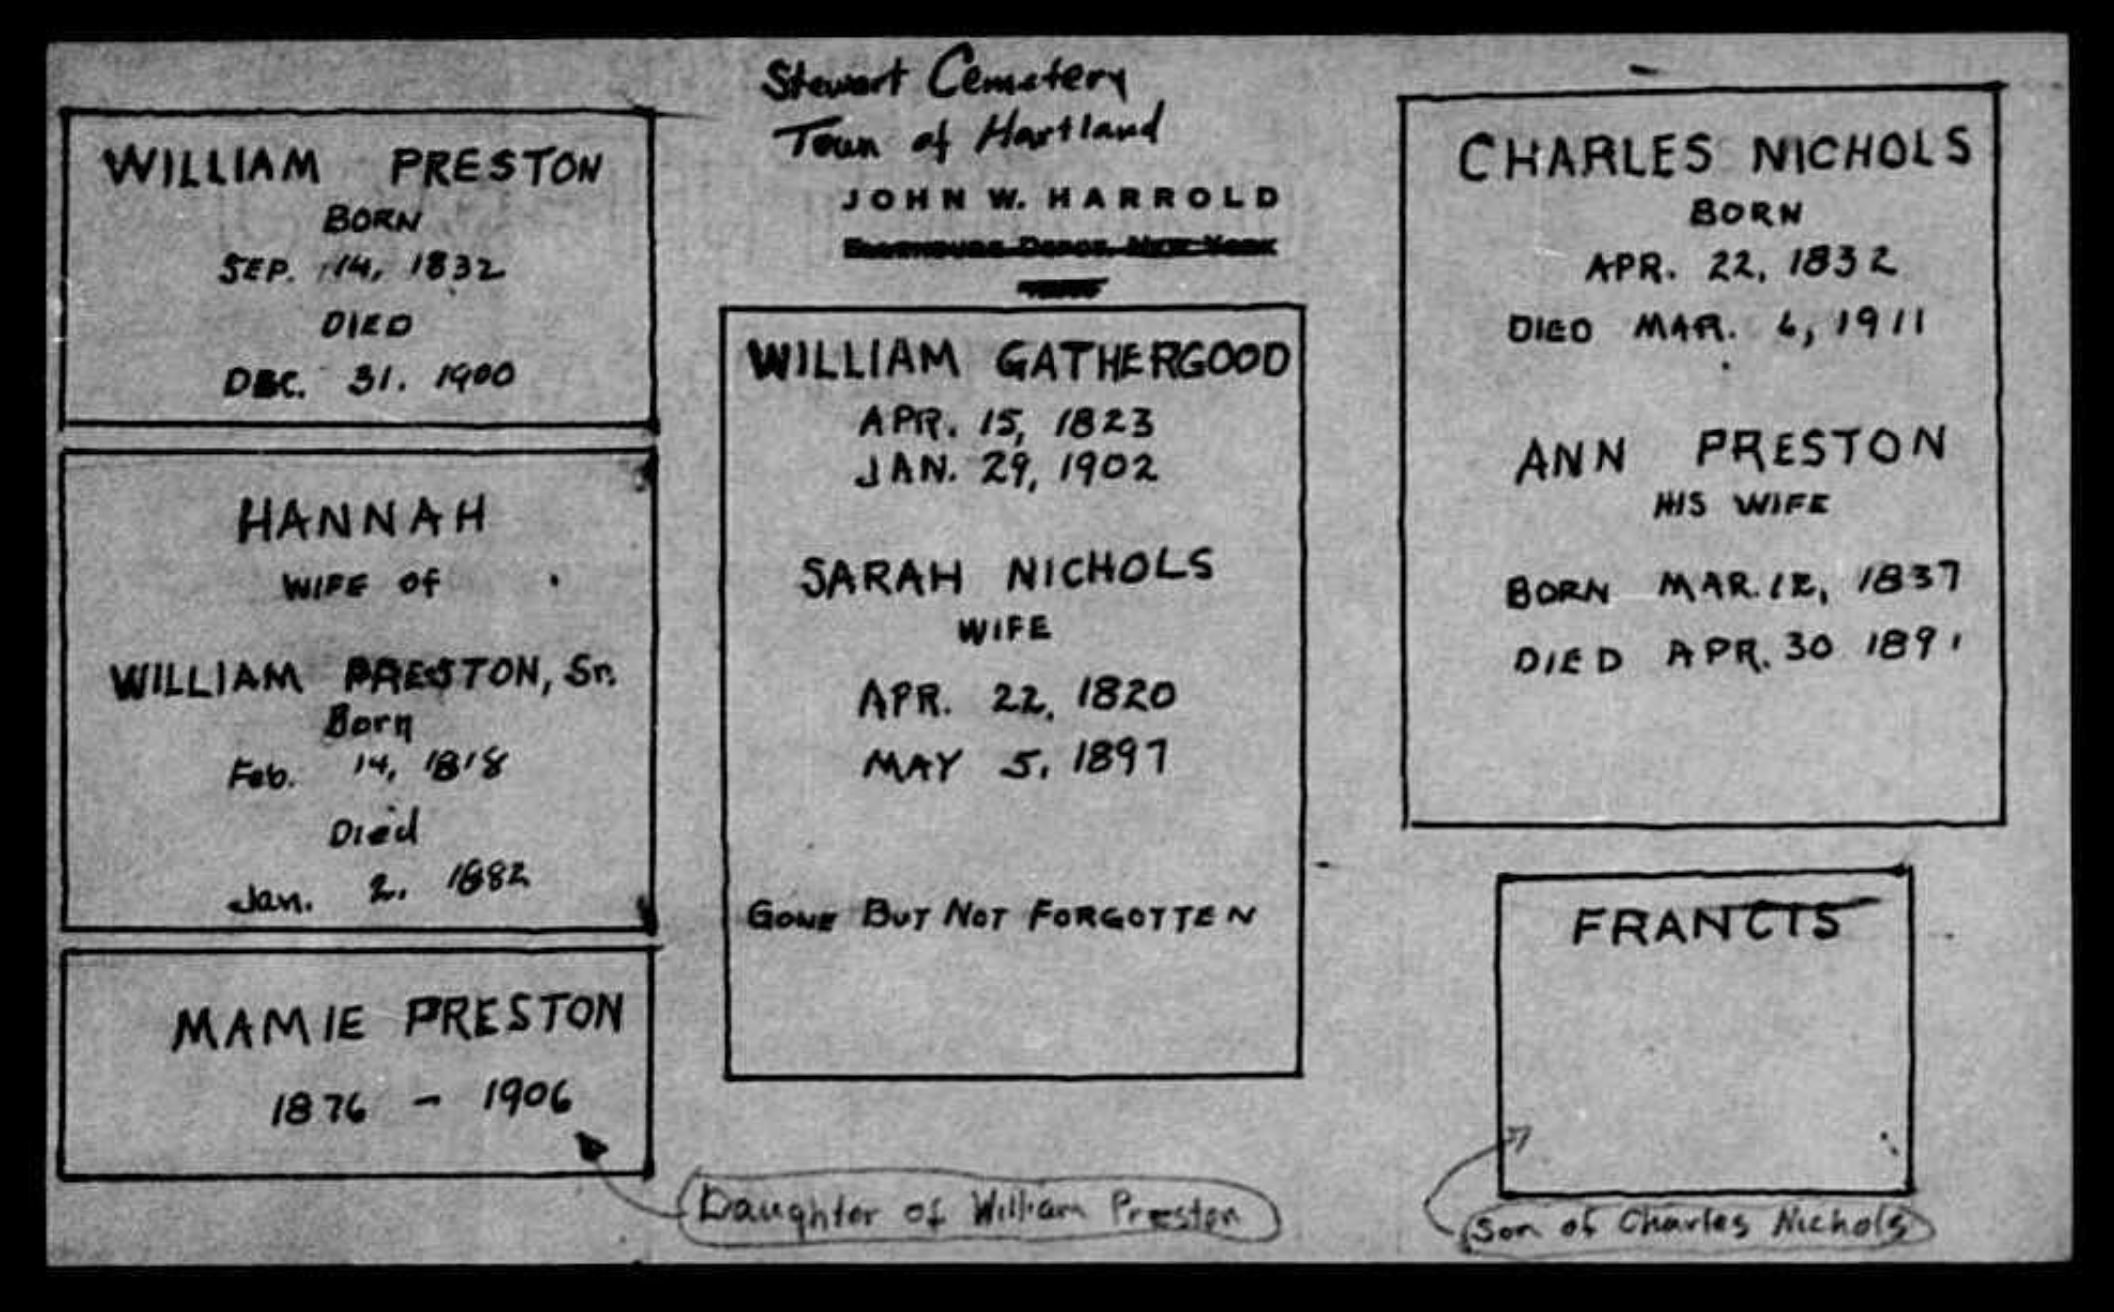 Stewart Cemetery
Town of Hartland
JOHN W. HARROLD
WILLIAM PRESTON
BORN
SEP. 14, 1832
DIED
DEC. 31. 1900
HANNAH
WIFE of
WILLIAM PRESTON, Sr.
Born
Feb. 14, 1818
Died
Jan. 2. 1882
MAMIE PRESTON
1876 - 1906
Daughter of William Preston
WILLIAM GATHERGOOD
APR. 15, 1823
JAN. 29, 1902
SARAH NICHOLS
WIFE
APR. 22, 1820
MAY 5, 1897
GONE BUT NOT FORGOTTEN
CHARLES NICHOLS
BORN
APR. 22, 1832
DIED MAR. 6, 1911
ANN PRESTON
HIS WIFE
BORN MAR. 12, 1837
DIED APR. 30 1891
FRANCIS
Son of Charles Nichols